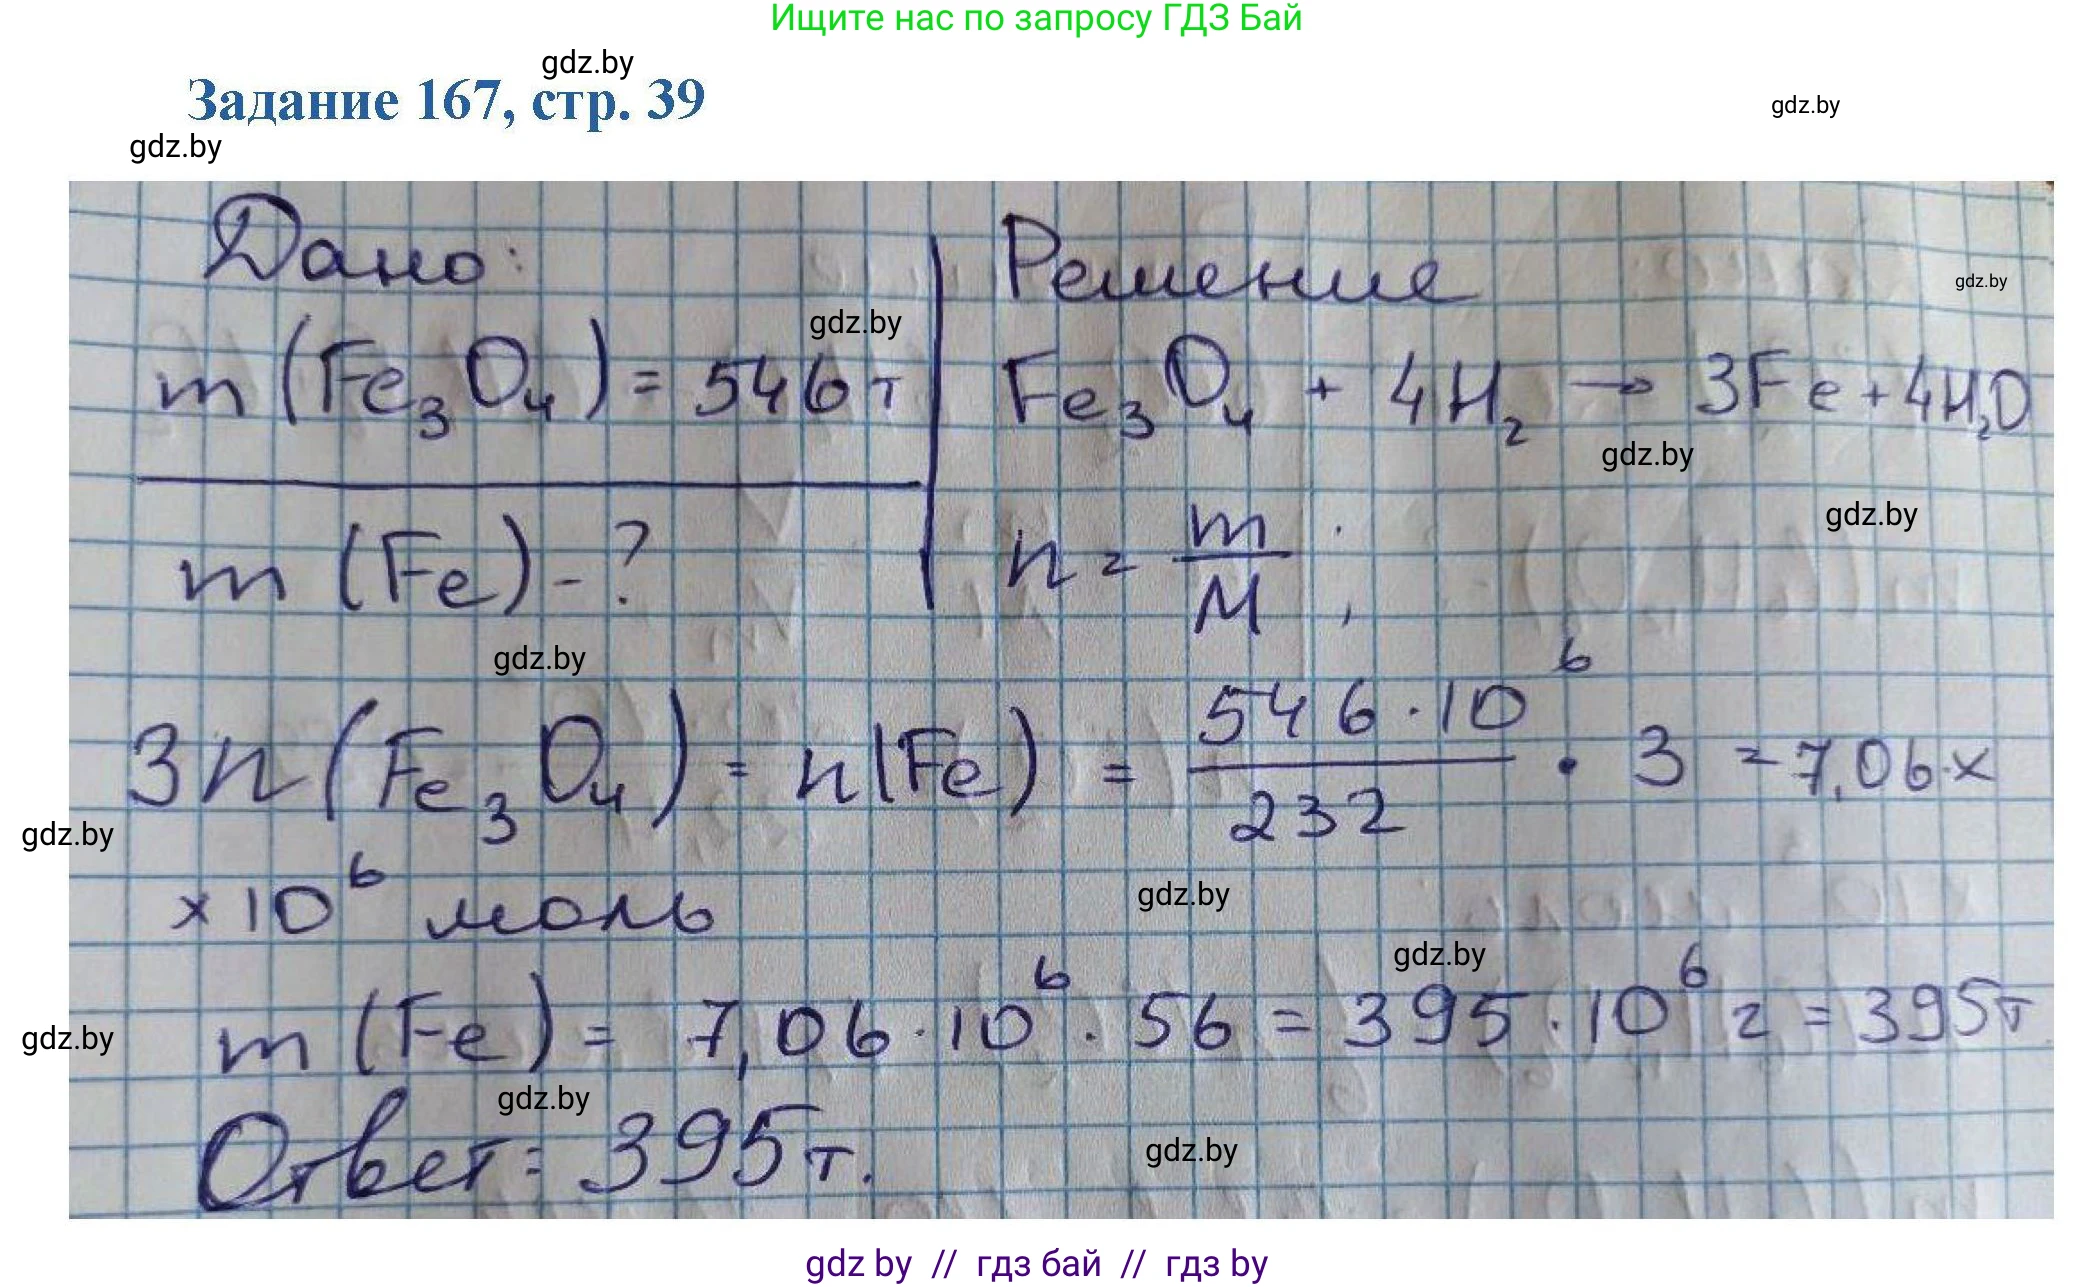 Ищите нас по запросу ГДЗ Бай
gdz.by
Задание 167, стр. 39
gdz.by
gdz.by
Дано:
Решение
gdz.by
gdz.by
m (Fe₃O₄) = 546 т
Fe₃O₄ + 4H₂ → 3Fe + 4H₂O
gdz.by
gdz.by
m (Fe) - ?
n = m/M ;
gdz.by
3n (Fe₃O₄) = n(Fe) = 546·10⁶/232 · 3 = 7,06 x
gdz.by
x 10⁶ моль
gdz.by
gdz.by
m (Fe) = 7,06·10⁶ · 56 = 395·10⁶ г = 395 т
gdz.by
gdz.by
Ответ: 395 т.
gdz.by
gdz by // гдз бай // гдз by